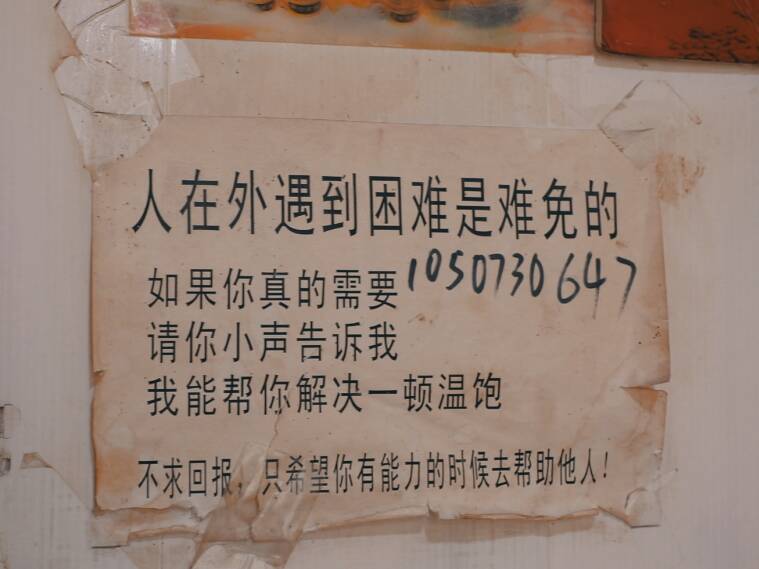 人在外遇到困难是难免的
如果你真的需要 1050730647
请你小声告诉我
我能帮你解决一顿温饱
不求回报，只希望你有能力的时候去帮助他人！